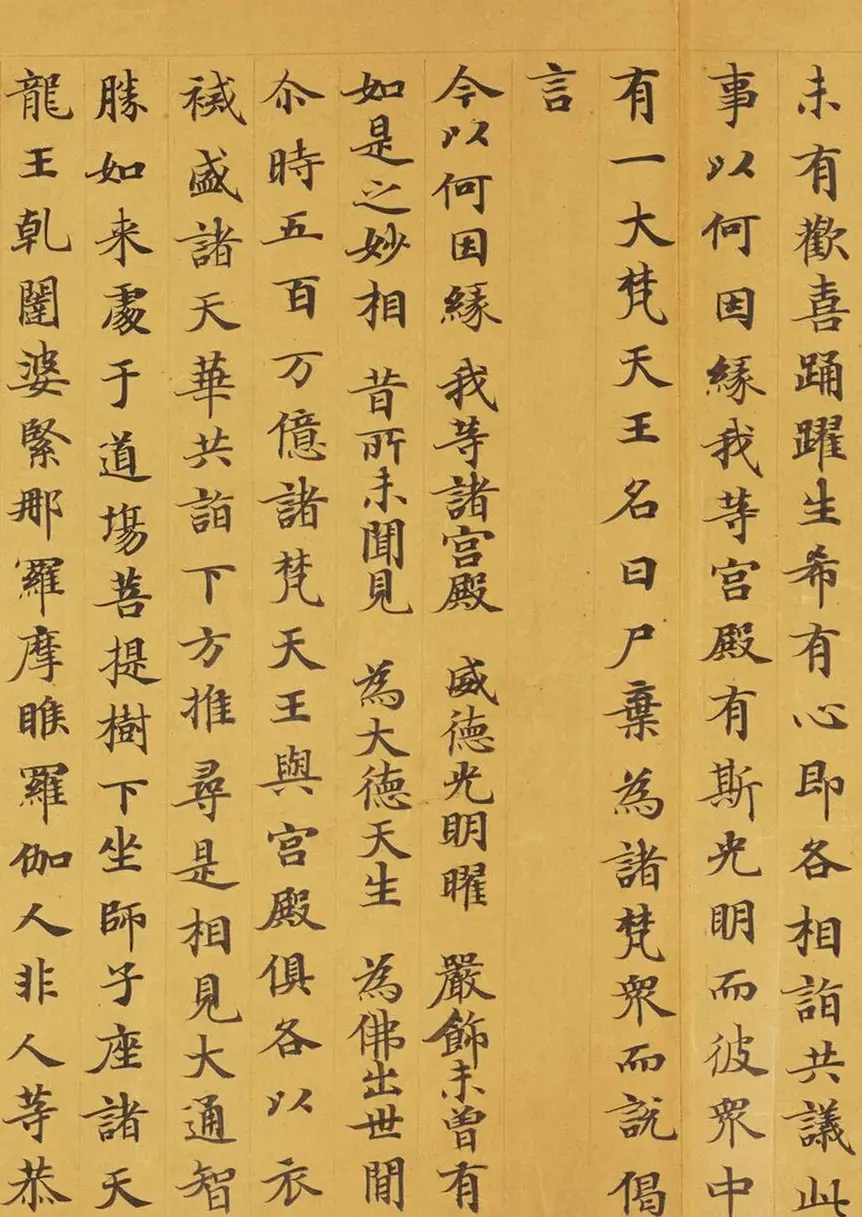 未有歡喜踊躍生希有心即各相詣共議此
事以何因緣我等宮殿有斯光明而彼眾中
有一大梵天王名曰尸棄為諸梵眾而說偈
言
今以何因緣 我等諸宮殿 威德光明曜 嚴飾未曾有
如是之妙相 昔所未聞見 為大德天生 為佛出世間
尒時五百万億諸梵天王與宮殿俱各以衣
祴盛諸天華共詣下方推尋是相見大通智
勝如来處于道場菩提樹下坐師子座諸天
龍王乹闥婆緊那羅摩睺羅伽人非人等恭